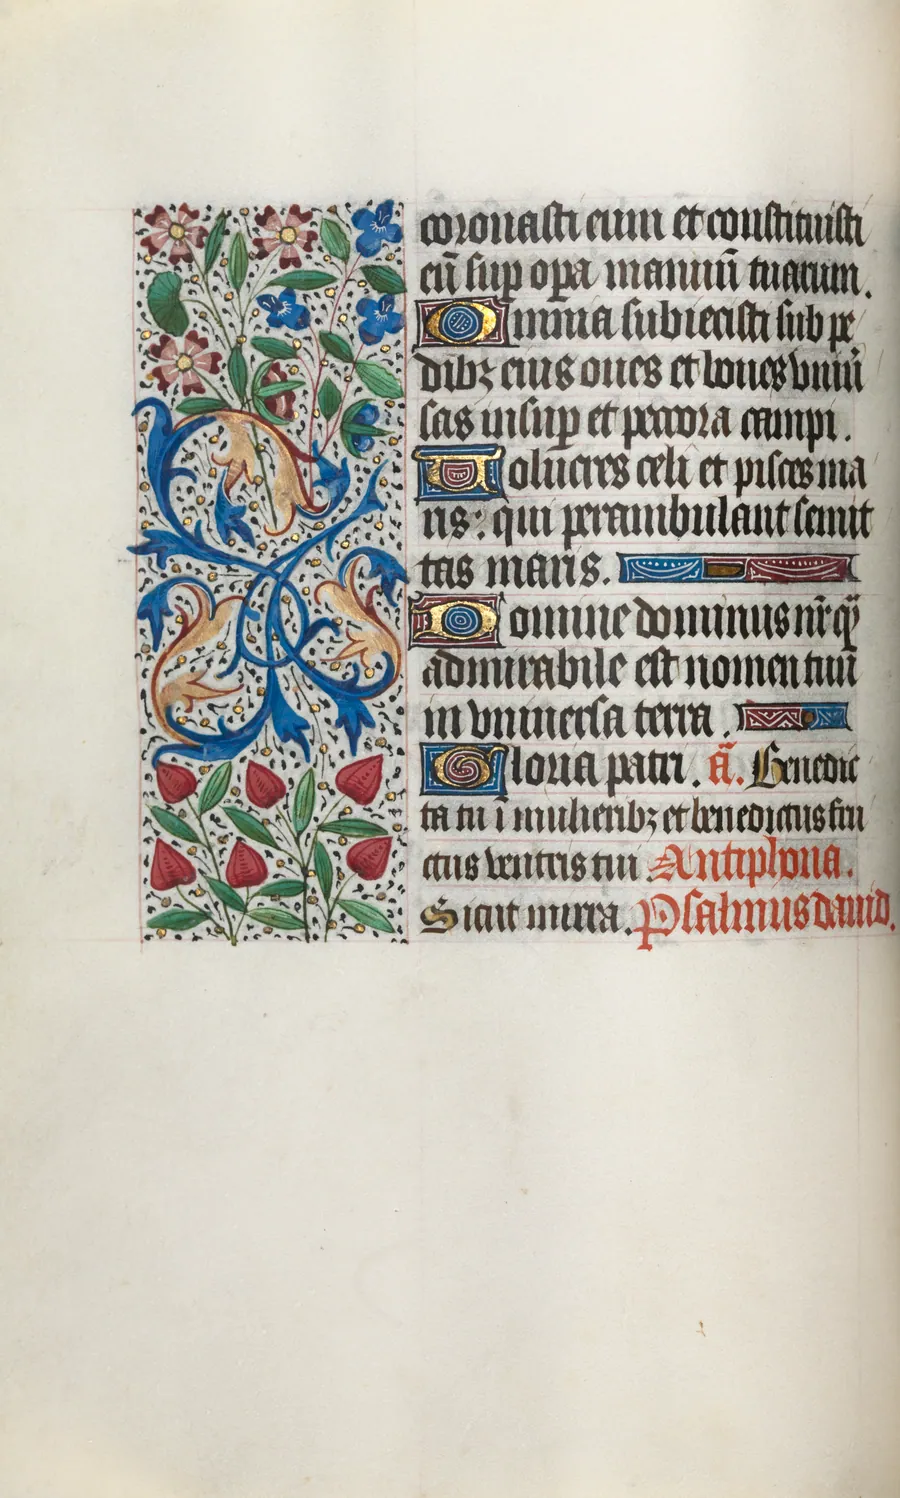 coronasti eum et constituisti
eū sup opa manuū tuarum.
Omnia subiecisti sub pe
dibꝫ eius oues et boues vniū
sas insup et pecora campi.
Uolucres celi et pisces ma
ris: qui perambulant semit
tas maris.
Domine dominus nr̄ qꝫ
admirabile est nomen tuū
in vniuersa terra.
Gloria patri. ā. Benedic
ta tu ī mulieribꝫ et benedictus fru
ctus ventris tui Antiphona.
Sicut mirra. Psalmus dauid.